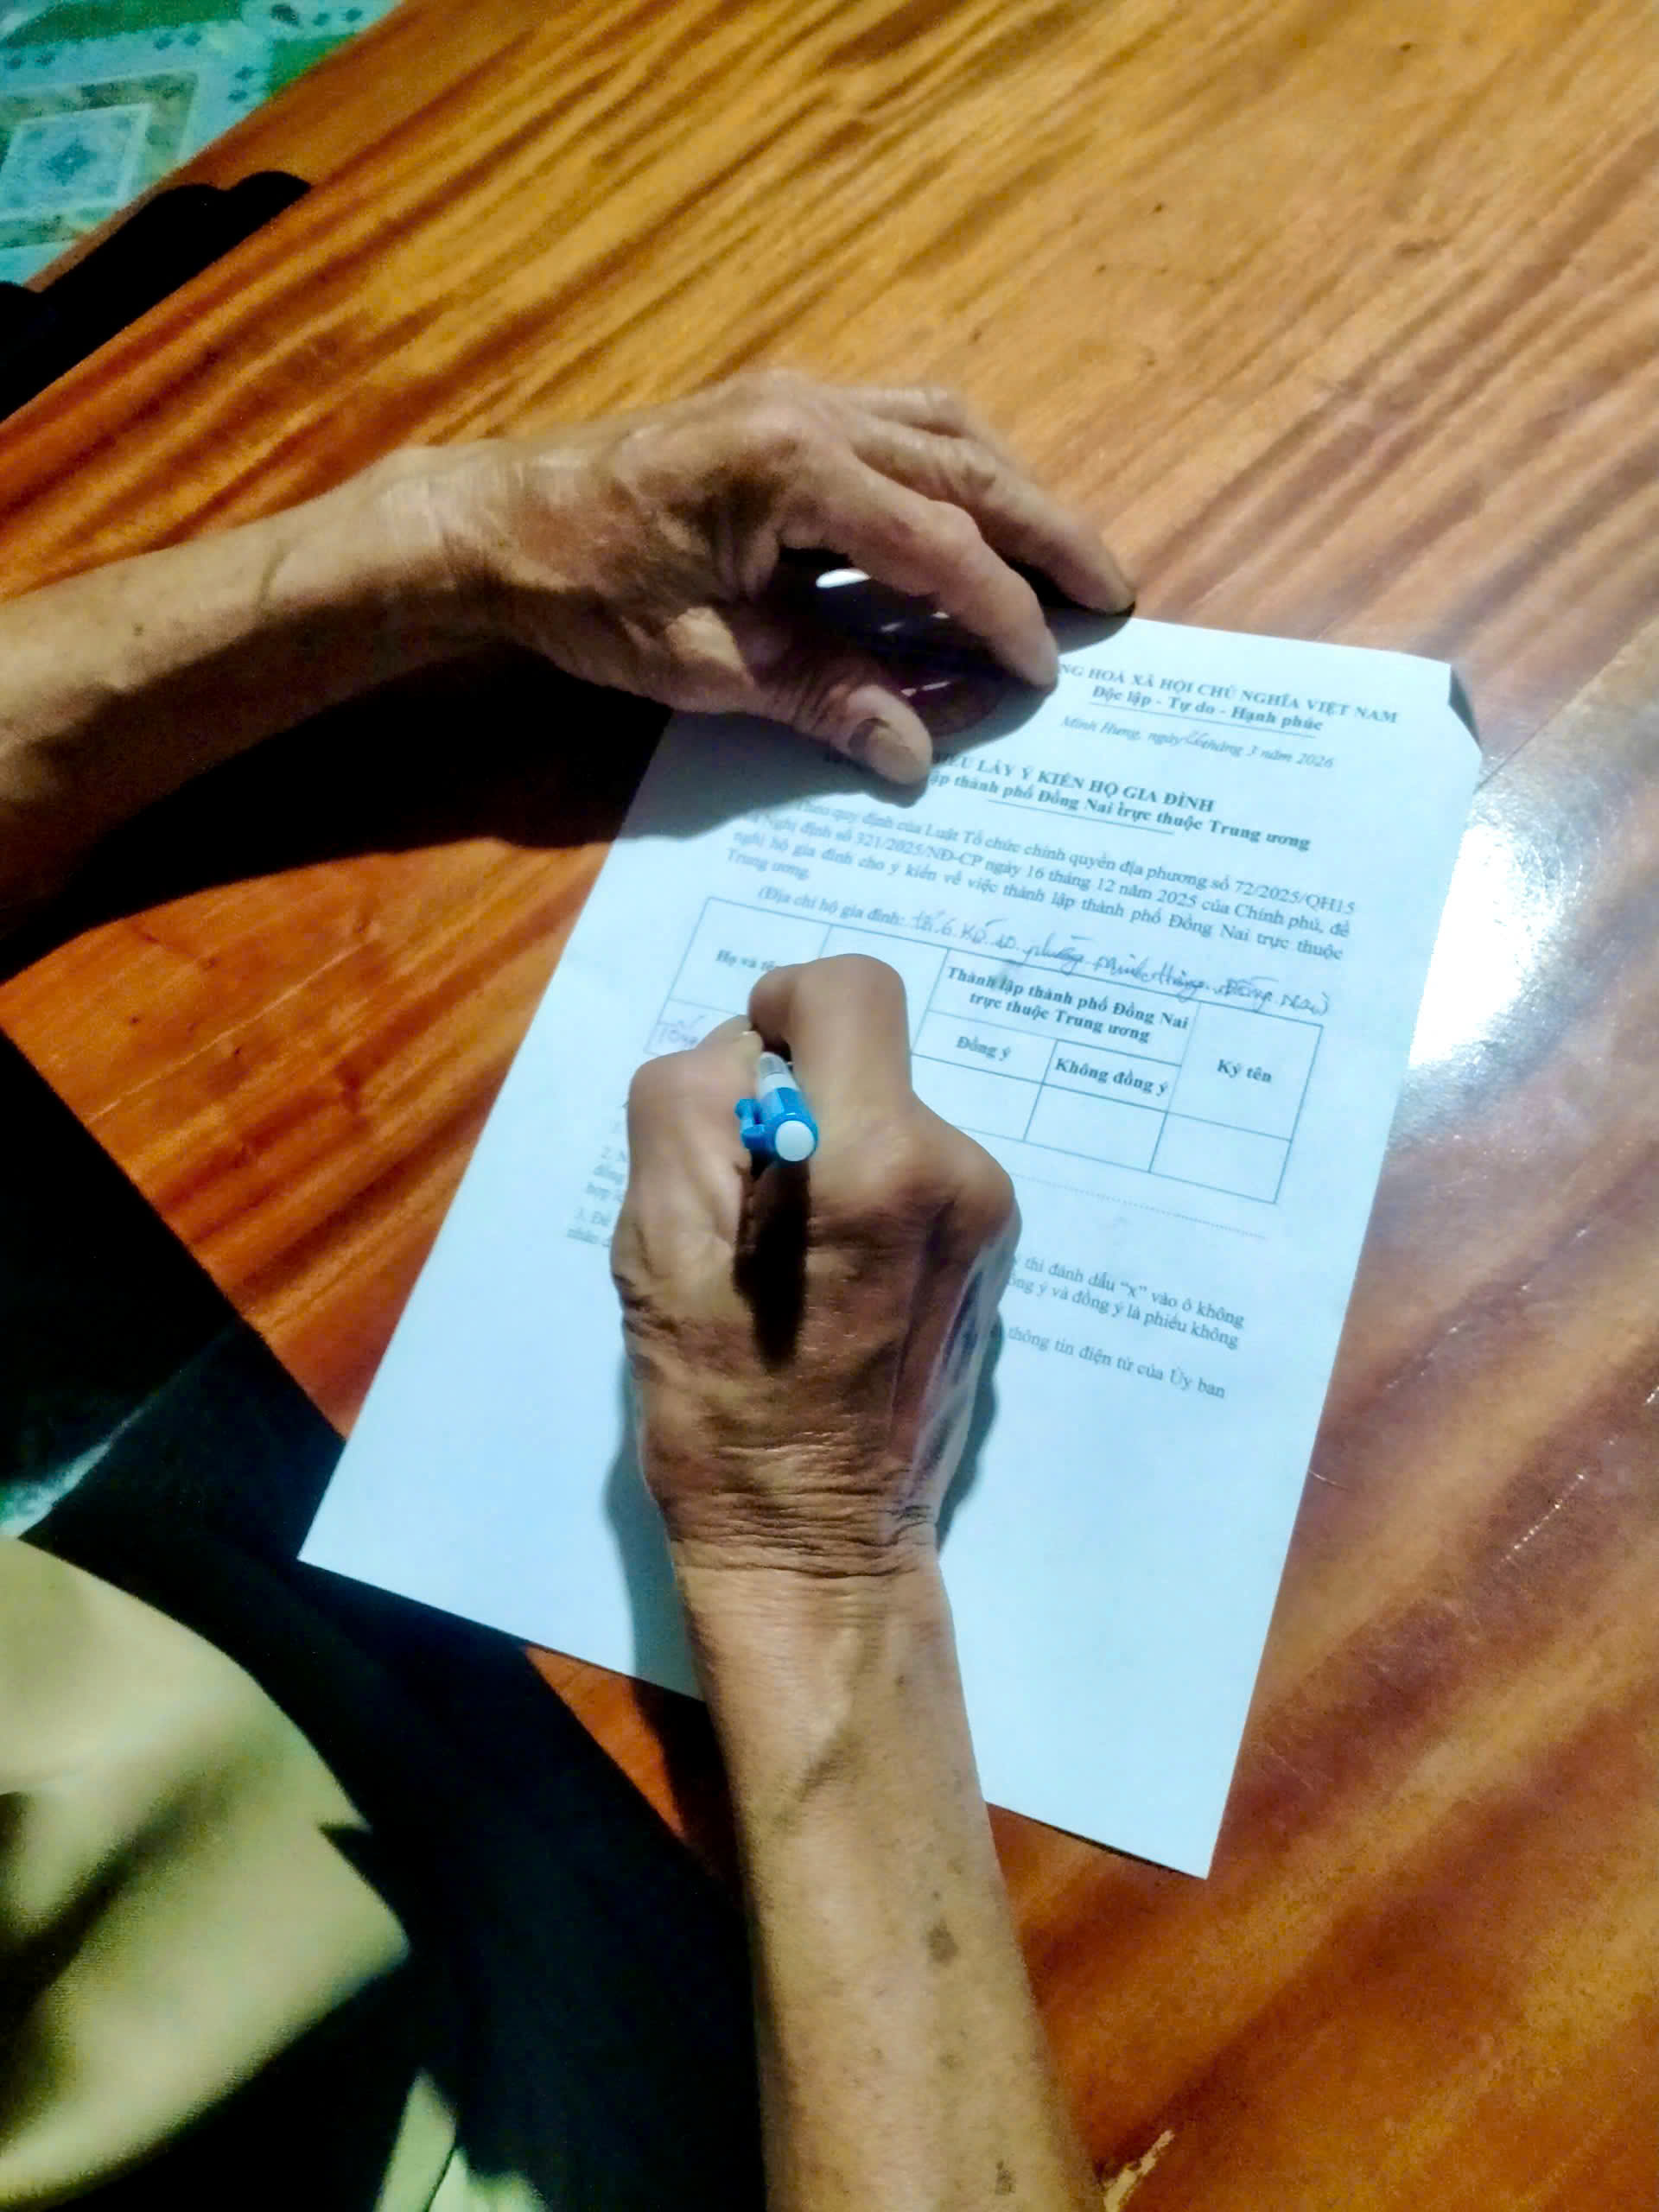 NG HOÀ XÃ HỘI CHỦ NGHĨA VIỆT NAM
Độc lập - Tự do - Hạnh phúc
Minh Hưng, ngày 26 tháng 3 năm 2026
LẤY Ý KIẾN HỘ GIA ĐÌNH
ập thành phố Đồng Nai trực thuộc Trung ương
quy định của Luật Tổ chức chính quyền địa phương số 72/2025/QH15
Nghị định số 321/2025/NĐ-CP ngày 16 tháng 12 năm 2025 của Chính phủ, đề
nghị hộ gia đình cho ý kiến về việc thành lập thành phố Đồng Nai trực thuộc
Trung ương.
(Địa chỉ hộ gia đình: tổ 6. KP 10. phường Minh Hưng. Đồng Nai)
Họ và tên
Thành lập thành phố Đồng Nai
trực thuộc Trung ương
Ký tên
Đồng ý
Không đồng ý
2.
thì đánh dấu “x” vào ô không
đồng
ồng ý và đồng ý là phiếu không
hợp
3. Để
thông tin điện tử của Ủy ban
nhân